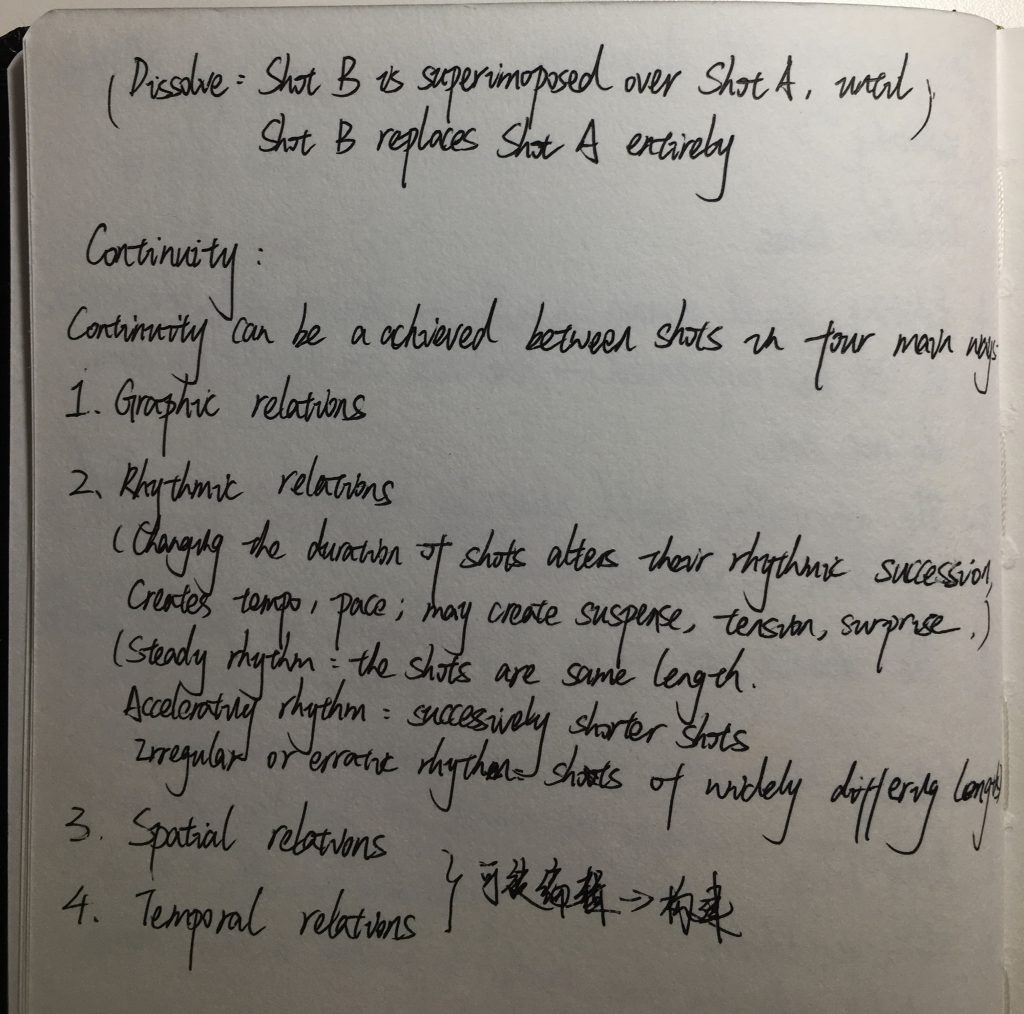 (Dissolve = Shot B is superimoposed over Shot A, until)
Shot B replaces Shot A entirely
Continuity :
Continuity can be a achieved between shots in four main ways:
1. Graphic relations
2. Rhythmic relations
(Changing the duration of shots alters their rhythmic succession,
Creates tempo, pace; may create suspense, tension, surprise.)
(Steady rhythm = the shots are same length.
Accelerating rhythm = successively shorter shots
Irregular or erratic rhythm = shots of widely differing length)
3. Spatial relations
4. Temporal relations } 可被编辑→构建